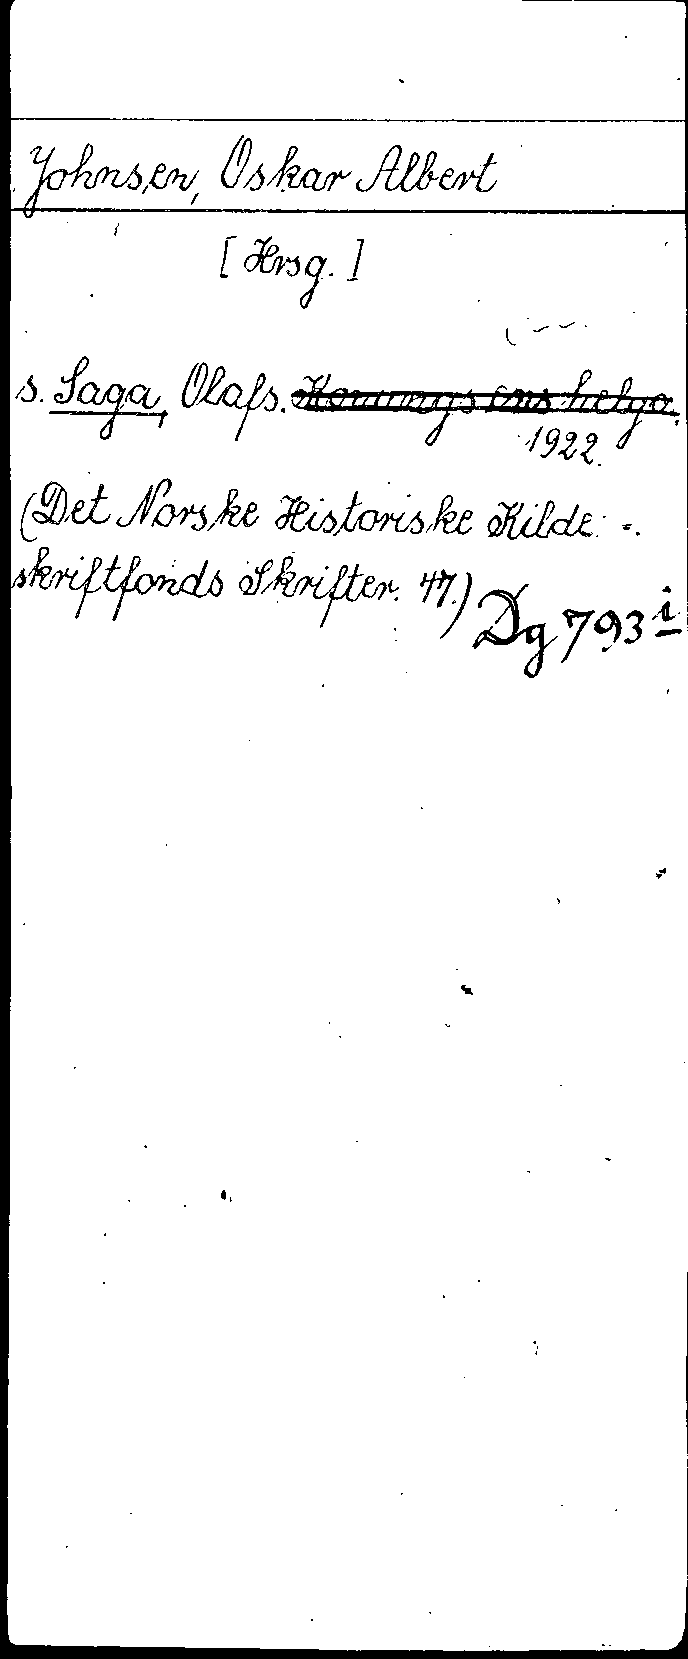 Johnsen, Oskar Albert
[Hrsg.]
s. Saga, Olafs. Konungs ens helga.
1922.
(Det Norske Historiske Kilde-
skriftfonds Skrifter. 47.)
Dg 793 i